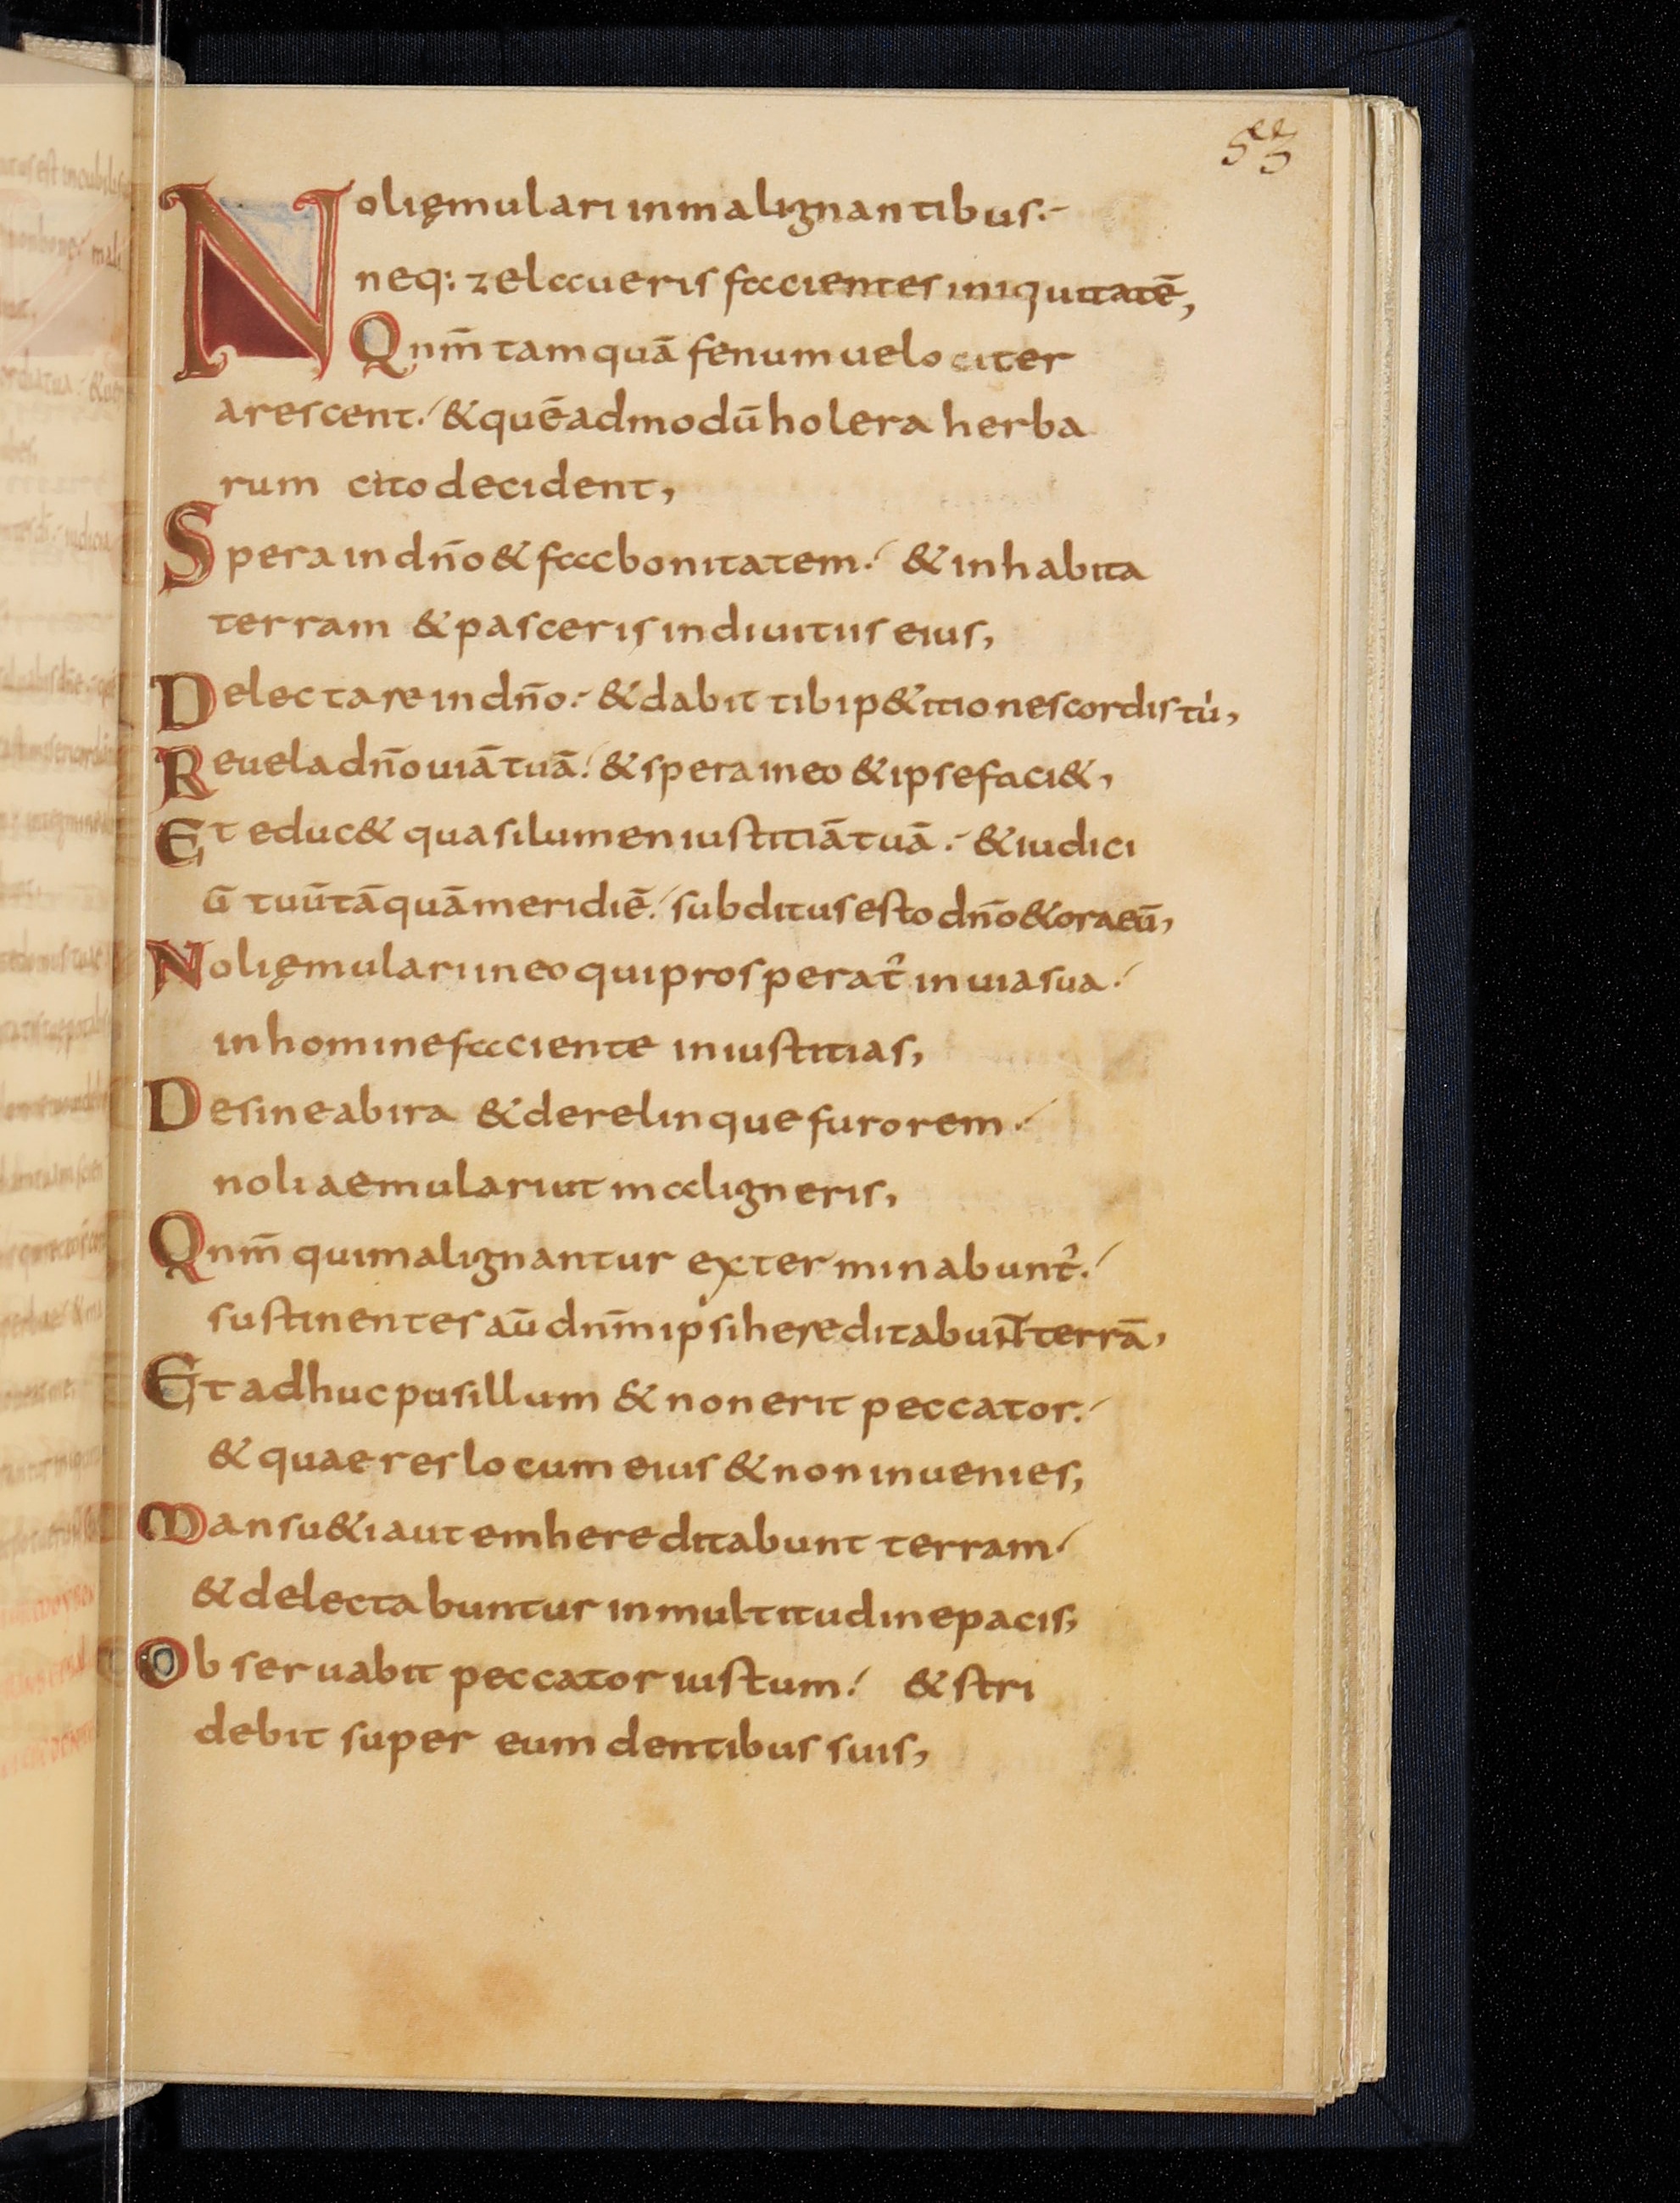 Noli ęmulari in malignantibus.
neq: zelaueris facientes iniquitatē,
Qnm̄ tamquā fenum uelociter
arescent. & quēadmodū holera herba
rum cito decident,
Spera in dn̄o & fac bonitatem. & inhabita
terram & pasceris in diuitiis eius,
Delectare in dn̄o. & dabit tibi p&itiones cordis tui,
Reuela dn̄o uiā tuā. & spera in eo & ipse faci&,
Et educ& quasi lumen iustitiā tuā. & iudici
ū tuū tāquā meridiē. subditus esto dn̄o & ora eū,
Noli ęmulari in eo qui prosperat᾽ in uia sua.
in homine faciente iniustitias,
Desine ab ira & derelinque furorem.
noli aemulari ut maligneris,
Qnm̄ qui malignantur exterminabunt᾽.
sustinentes aū dnm̄ ipsi hereditabunt terrā,
Et adhuc pusillum & non erit peccator.
& quaeres locum eius & non inuenies,
Mansu&i autem hereditabunt terram.
& delectabuntur in multitudine pacis,
Obseruabit peccator iustum. & stri
debit super eum dentibus suis,